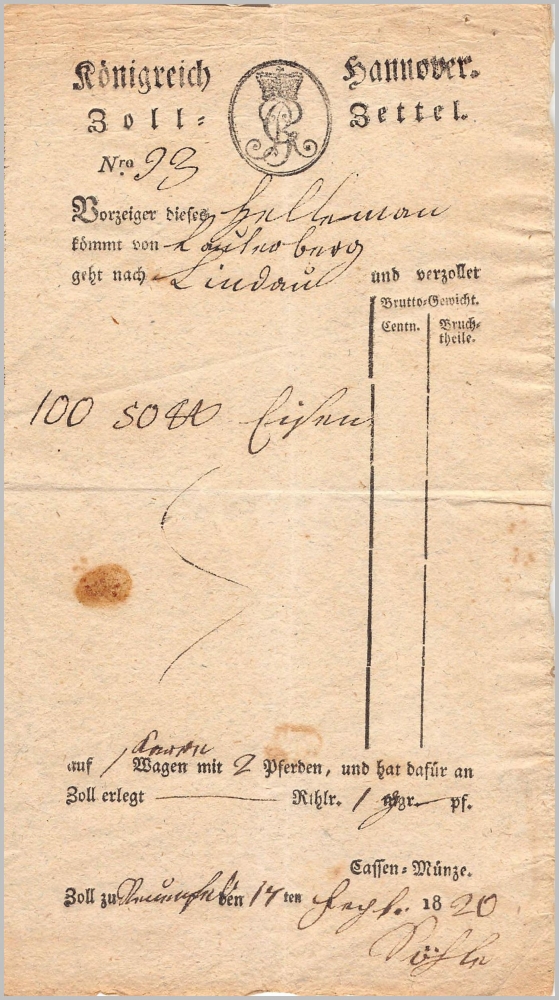 Königreich Hannover.
Zoll- Zettel.
GR
Nro 93
Vorzeiger dieses Helleman
kömmt von Lauterberg
geht nach Lindau und verzollet
Brutto-Gewicht.
Centn. Bruch-
theile.
100 50 ℔ Eisen
auf 1 Karre Wagen mit 2 Pferden, und hat dafür an
Zoll erlegt — Rthlr. 1 gr. — pf.
Cassen-Münze.
Zoll zu den 14ten Sept. 1820